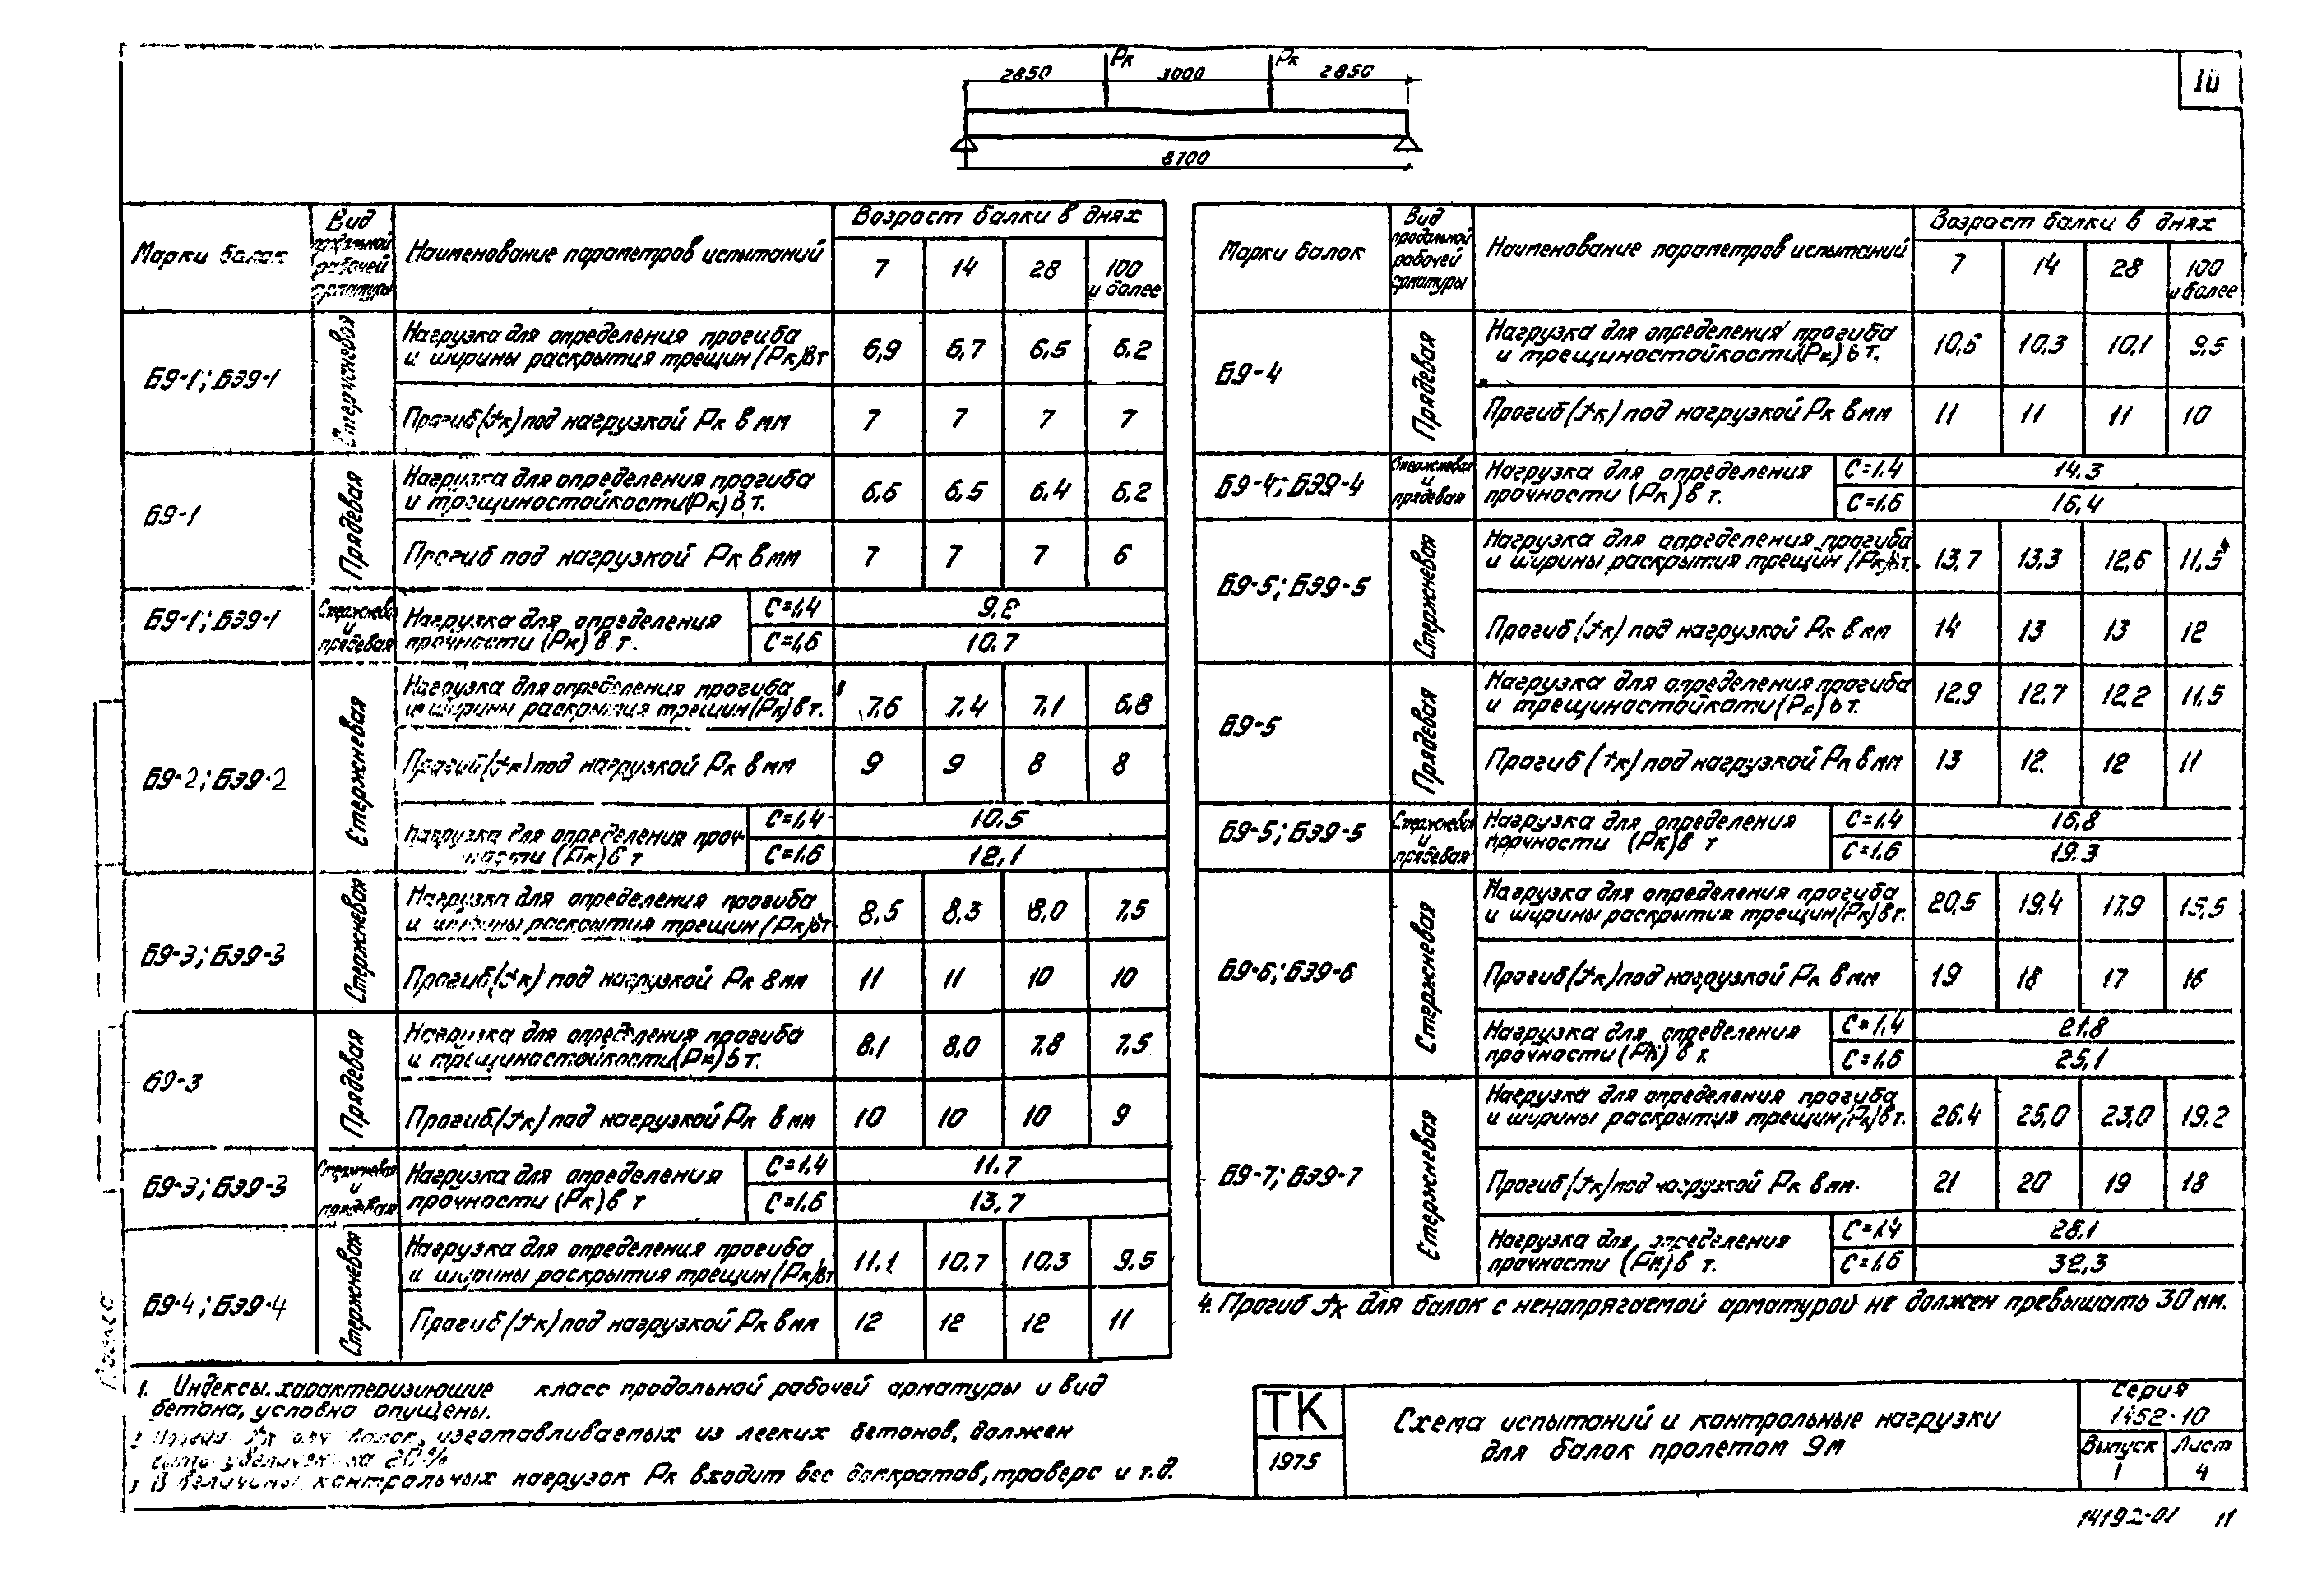 10
2850 Рк 3000 Рк 2850
8700
Марки балок
Вид продольной рабочей арматуры
Наименование параметров испытаний
Возраст балки в днях
7 14 28 100 и более
Б9-1; БЭ9-1
Стержневая
Нагрузка для определения прогиба
и ширины раскрытия трещин (Рк) вт 6,9 6,7 6.5 6.2
Прогиб (fк) под нагрузкой Рк в мм 7 7 7 7
Б9-1
Прядевая
Нагрузка для определения прогиба
и трещиностойкости (Рк) в т. 6,6 6,5 6.4 6.2
Прогиб под нагрузкой Рк в мм 7 7 7 6
Б9-1; БЭ9-1
Стержневая и прядевая
Нагрузка для определения С=1,4
прочности (Рк) в т. С=1,6 10.7
Б9-2; БЭ9-2
Стержневая
Нагрузка для определения прогиба
и ширины раскрытия трещин (Рк) в т. 7.6 7.4 7.1 6,8
Прогиб (fк) под нагрузкой Рк в мм 9 9 8 8
Нагрузка для определения проч- С=1,4 10.5
ности (Рк) в т С=1.6 12,1
Б9-3; БЭ9-3
Стержневая
Нагрузка для определения прогиба
и ширины раскрытия трещин (Рк) вт 8,5 8,3 8,0 7,5
Прогиб (fк) под нагрузкой Рк в мм 11 11 10 10
Б9-3
Прядевая
Нагрузка для определения прогиба
и трещиностойкости (Рк) в т. 8.1 8.0 7.8 7.5
Прогиб (fк) под нагрузкой Рк в мм 10 10 10 9
Б9-3; БЭ9-3
Стержневая и прядевая
Нагрузка для определения С=1.4 11.7
прочности (Рк) в т С=1.6 13,7
Б9-4; БЭ9-4
Стержневая
Нагрузка для определения прогиба
и ширины раскрытия трещин (Рк) вт 11.1 10.7 10.3 9.5
Прогиб (fк) под нагрузкой Рк в мм 12 12 12 11
Марки балок
Вид продольной рабочей арматуры
Наименование параметров испытаний
Возраст балки в днях
7 14 28 100 и более
Б9-4
Прядевая
Нагрузка для определения прогиба
и трещиностойкости (Рк) в т. 10,6 10.3 10,1 9.5
Прогиб (fк) под нагрузкой Рк в мм 11 11 11 10
Б9-4; БЭ9-4
Стержневая и прядевая
Нагрузка для определения С=1.4 14.3
прочности (Рк) в т. С=1,6 16,4
Б9-5; БЭ9-5
Стержневая
Нагрузка для определения прогиба
и ширины раскрытия трещин (Рк) вт. 13,7 13,3 12,6 11.5
Прогиб (fк) под нагрузкой Рк в мм 14 13 13 12
Б9-5
Прядевая
Нагрузка для определения прогиба
и трещиностойкоти (Рк) в т. 12,9 12,7 12,2 11.5
Прогиб (fк) под нагрузкой Рк в мм 13 12 12 11
Б9-5; БЭ9-5
Стержневая и прядевая
Нагрузка для определения С=1.4 16,8
прочности (Рк) в т С=1.6 19.3
Б9-6; БЭ9-6
Стержневая
Нагрузка для определения прогиба
и ширины раскрытия трещин (Рк) в т. 20,5 19.4 17,9 15,5
Прогиб (fк) под нагрузкой Рк в мм 19 18 17 16
Нагрузка для определения С=1.4 21.8
прочности (Рк) в т. С=1.6 25,1
Б9-7; БЭ9-7
Стержневая
Нагрузка для определения прогиба
и ширины раскрытия трещин (Рк) в т. 26.4 25,0 23,0 19.2
Прогиб (fк) под нагрузкой Рк в мм. 21 20 19 18
Нагрузка для определения С=1.4 28,1
прочности (Рк) в т. С=1,6 32,3
4. Прогиб fк для балок с ненапрягаемой арматурой не должен превышать 30 мм.
1. Индексы, характеризующие класс продольной рабочей арматуры и вид
бетона, условно опущены.
2 Прогиб fк для балок, изготавливаемых из легких бетонов, должен
быть увеличен на 20%
3 В величины контрольных нагрузок Рк входит вес домкратов, траверс и т.д.
ТК
1975
Схема испытаний и контрольные нагрузки
для балок пролетом 9м
Серия
1.462-10
Выпуск Лист
1 4
14192-01 11